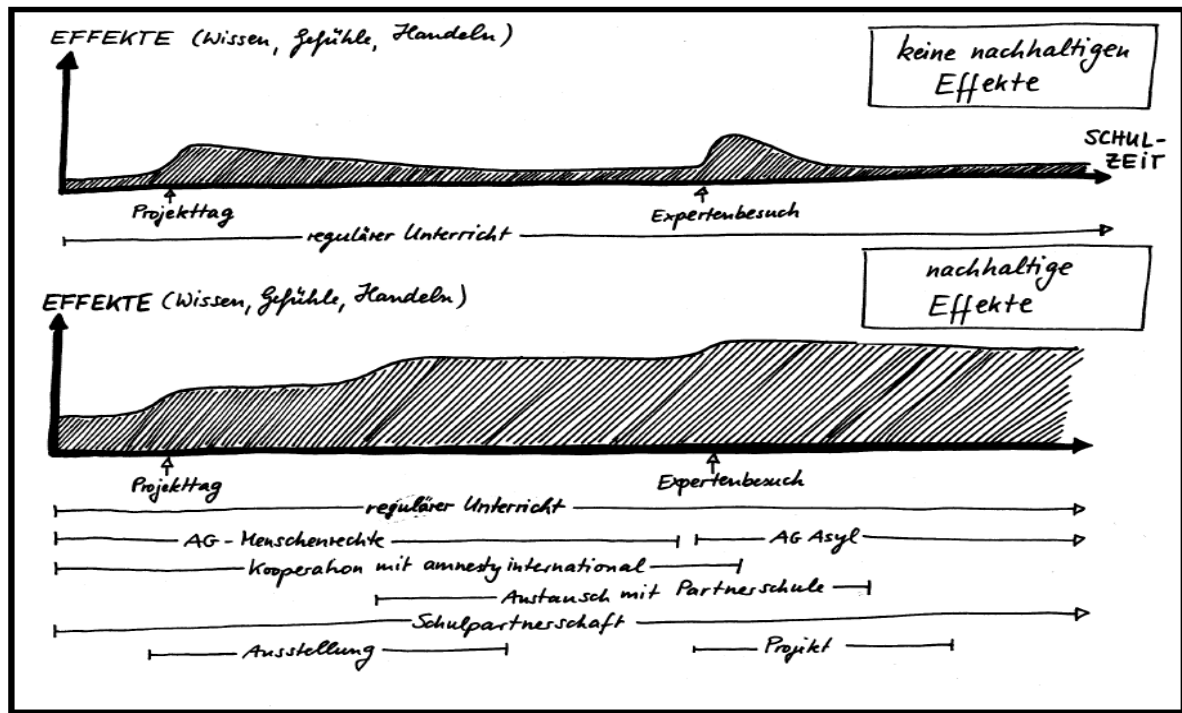 EFFEKTE (Wissen, Gefühle, Handeln)
keine nachhaltigen
Effekte
SCHUL-
ZEIT
Projekttag
Expertenbesuch
regulärer Unterricht
nachhaltige
Effekte
EFFEKTE (Wissen, Gefühle, Handeln)
Projekttag
Expertenbesuch
regulärer Unterricht
AG-Menschenrechte
AG Asyl
Kooperation mit amnesty international
Austausch mit Partnerschule
Schulpartnerschaft
Ausstellung
Projekt